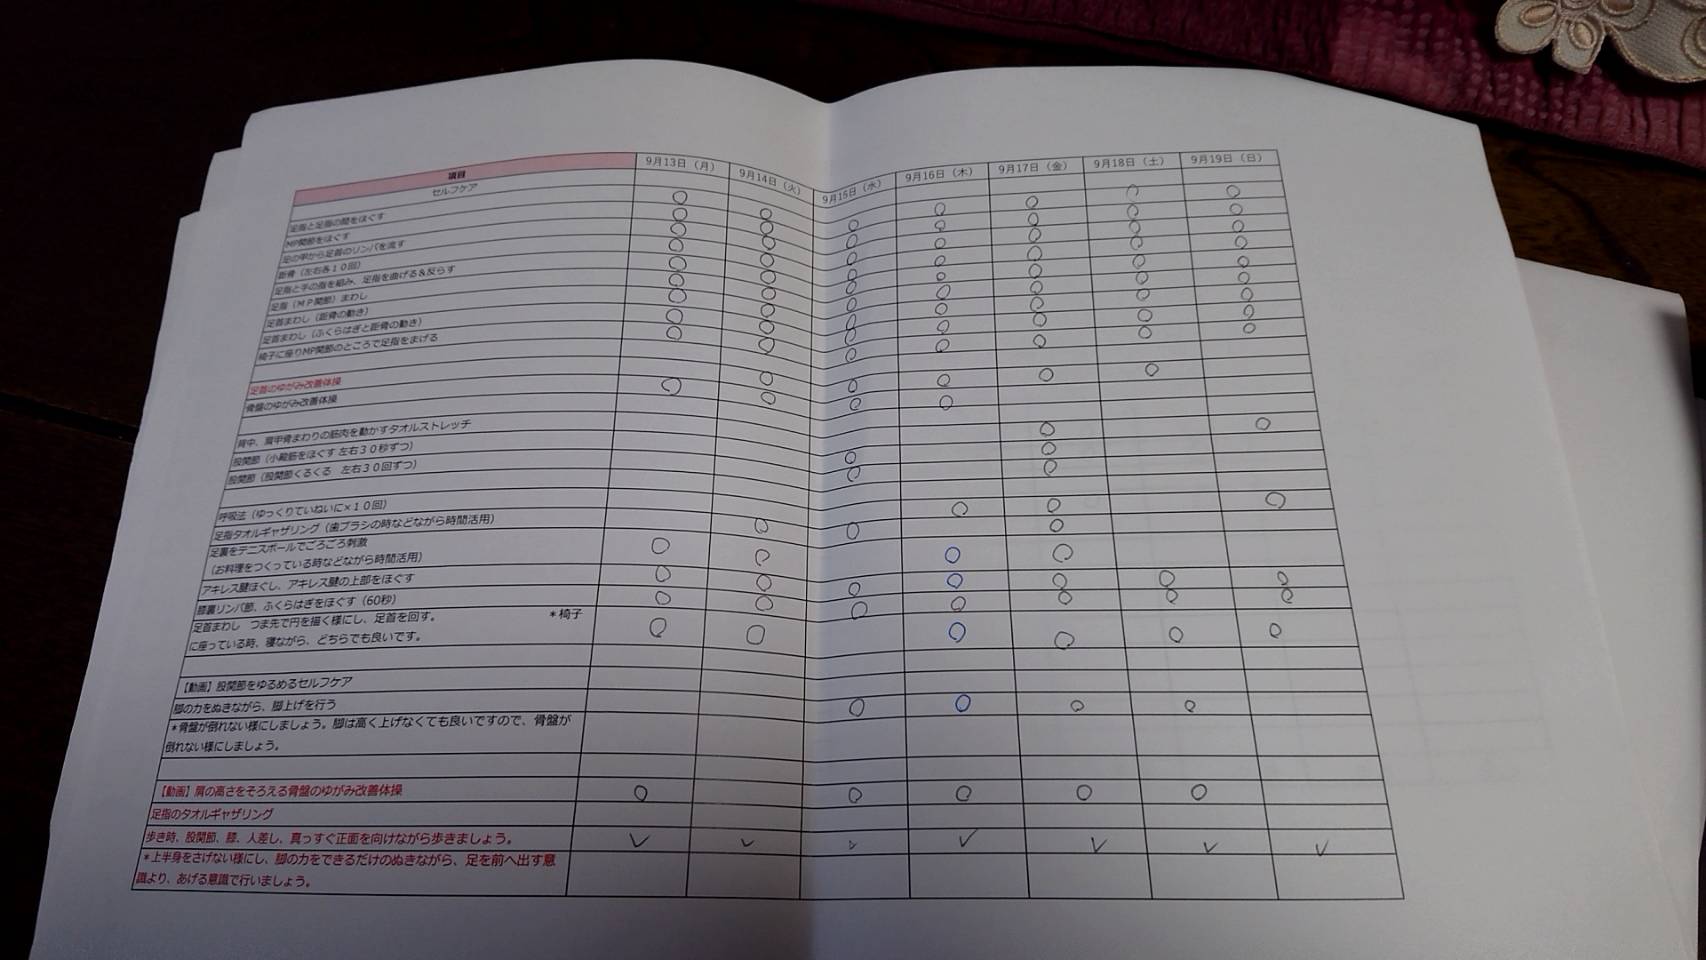 項目 9月13日（月） 9月14日（火） 9月15日（水） 9月16日（木） 9月17日（金） 9月18日（土） 9月19日（日）
セルフケア
足指と足指の間をほぐす ○ ○ ○ ○ ○ ○ ○
MP関節をほぐす ○ ○ ○ ○ ○ ○ ○
足の甲から足首のリンパを流す ○ ○ ○ ○ ○ ○ ○
距骨（左右各１０回） ○ ○ ○ ○ ○ ○ ○
足指と手の指を組み、足指を曲げる＆反らす ○ ○ ○ ○ ○ ○ ○
足指（ＭＰ関節）まわし ○ ○ ○ ○ ○ ○ ○
足首まわし（距骨の動き） ○ ○ ○ ○ ○ ○ ○
足首まわし（ふくらはぎと距骨の動き） ○ ○ ○ ○ ○ ○ ○
椅子に座りMP関節のところで足指をまげる ○ ○ ○ ○ ○ ○ ○
足首のゆがみ改善体操 ○ ○ ○ ○ ○ ○
骨盤のゆがみ改善体操 ○ ○ ○
背中、肩甲骨まわりの筋肉を動かすタオルストレッチ ○ ○
股関節（小殿筋をほぐす 左右３０秒ずつ） ○ ○
股関節（股関節くるくる 左右３０回ずつ） ○ ○
呼吸法（ゆっくりていねいに×１０回） ○ ○ ○
足指タオルギャザリング（歯ブラシの時などながら時間活用） ○ ○ ○
足裏をテニスボールでごろごろ刺激
（お料理をつくっている時などながら時間活用） ○ ○ ○ ○
アキレス腱ほぐし、アキレス腱の上部をほぐす ○ ○ ○ ○ ○ ○ ○
膝裏リンパ節、ふくらはぎをほぐす（60秒） ○ ○ ○ ○ ○ ○ ○
足首まわし つま先で円を描く様にし、足首を回す。 ＊椅子
に座っている時、寝ながら、どちらでも良いです。 ○ ○ ○ ○ ○ ○
【動画】股関節をゆるめるセルフケア
脚の力をぬきながら、脚上げを行う ○ ○ ○ ○
＊骨盤が倒れない様にしましょう。脚は高く上げなくても良いですので、骨盤が
倒れない様にしましょう。
【動画】肩の高さをそろえる骨盤のゆがみ改善体操 ○ ○ ○ ○ ○
足指のタオルギャザリング
歩き時、股関節、膝、人差し、真っすぐ正面を向けながら歩きましょう。 ✓ ✓ ✓ ✓ ✓ ✓ ✓
＊上半身をさげない様にし、脚の力をできるだけのぬきながら、足を前へ出す意
識より、あげる意識で行いましょう。